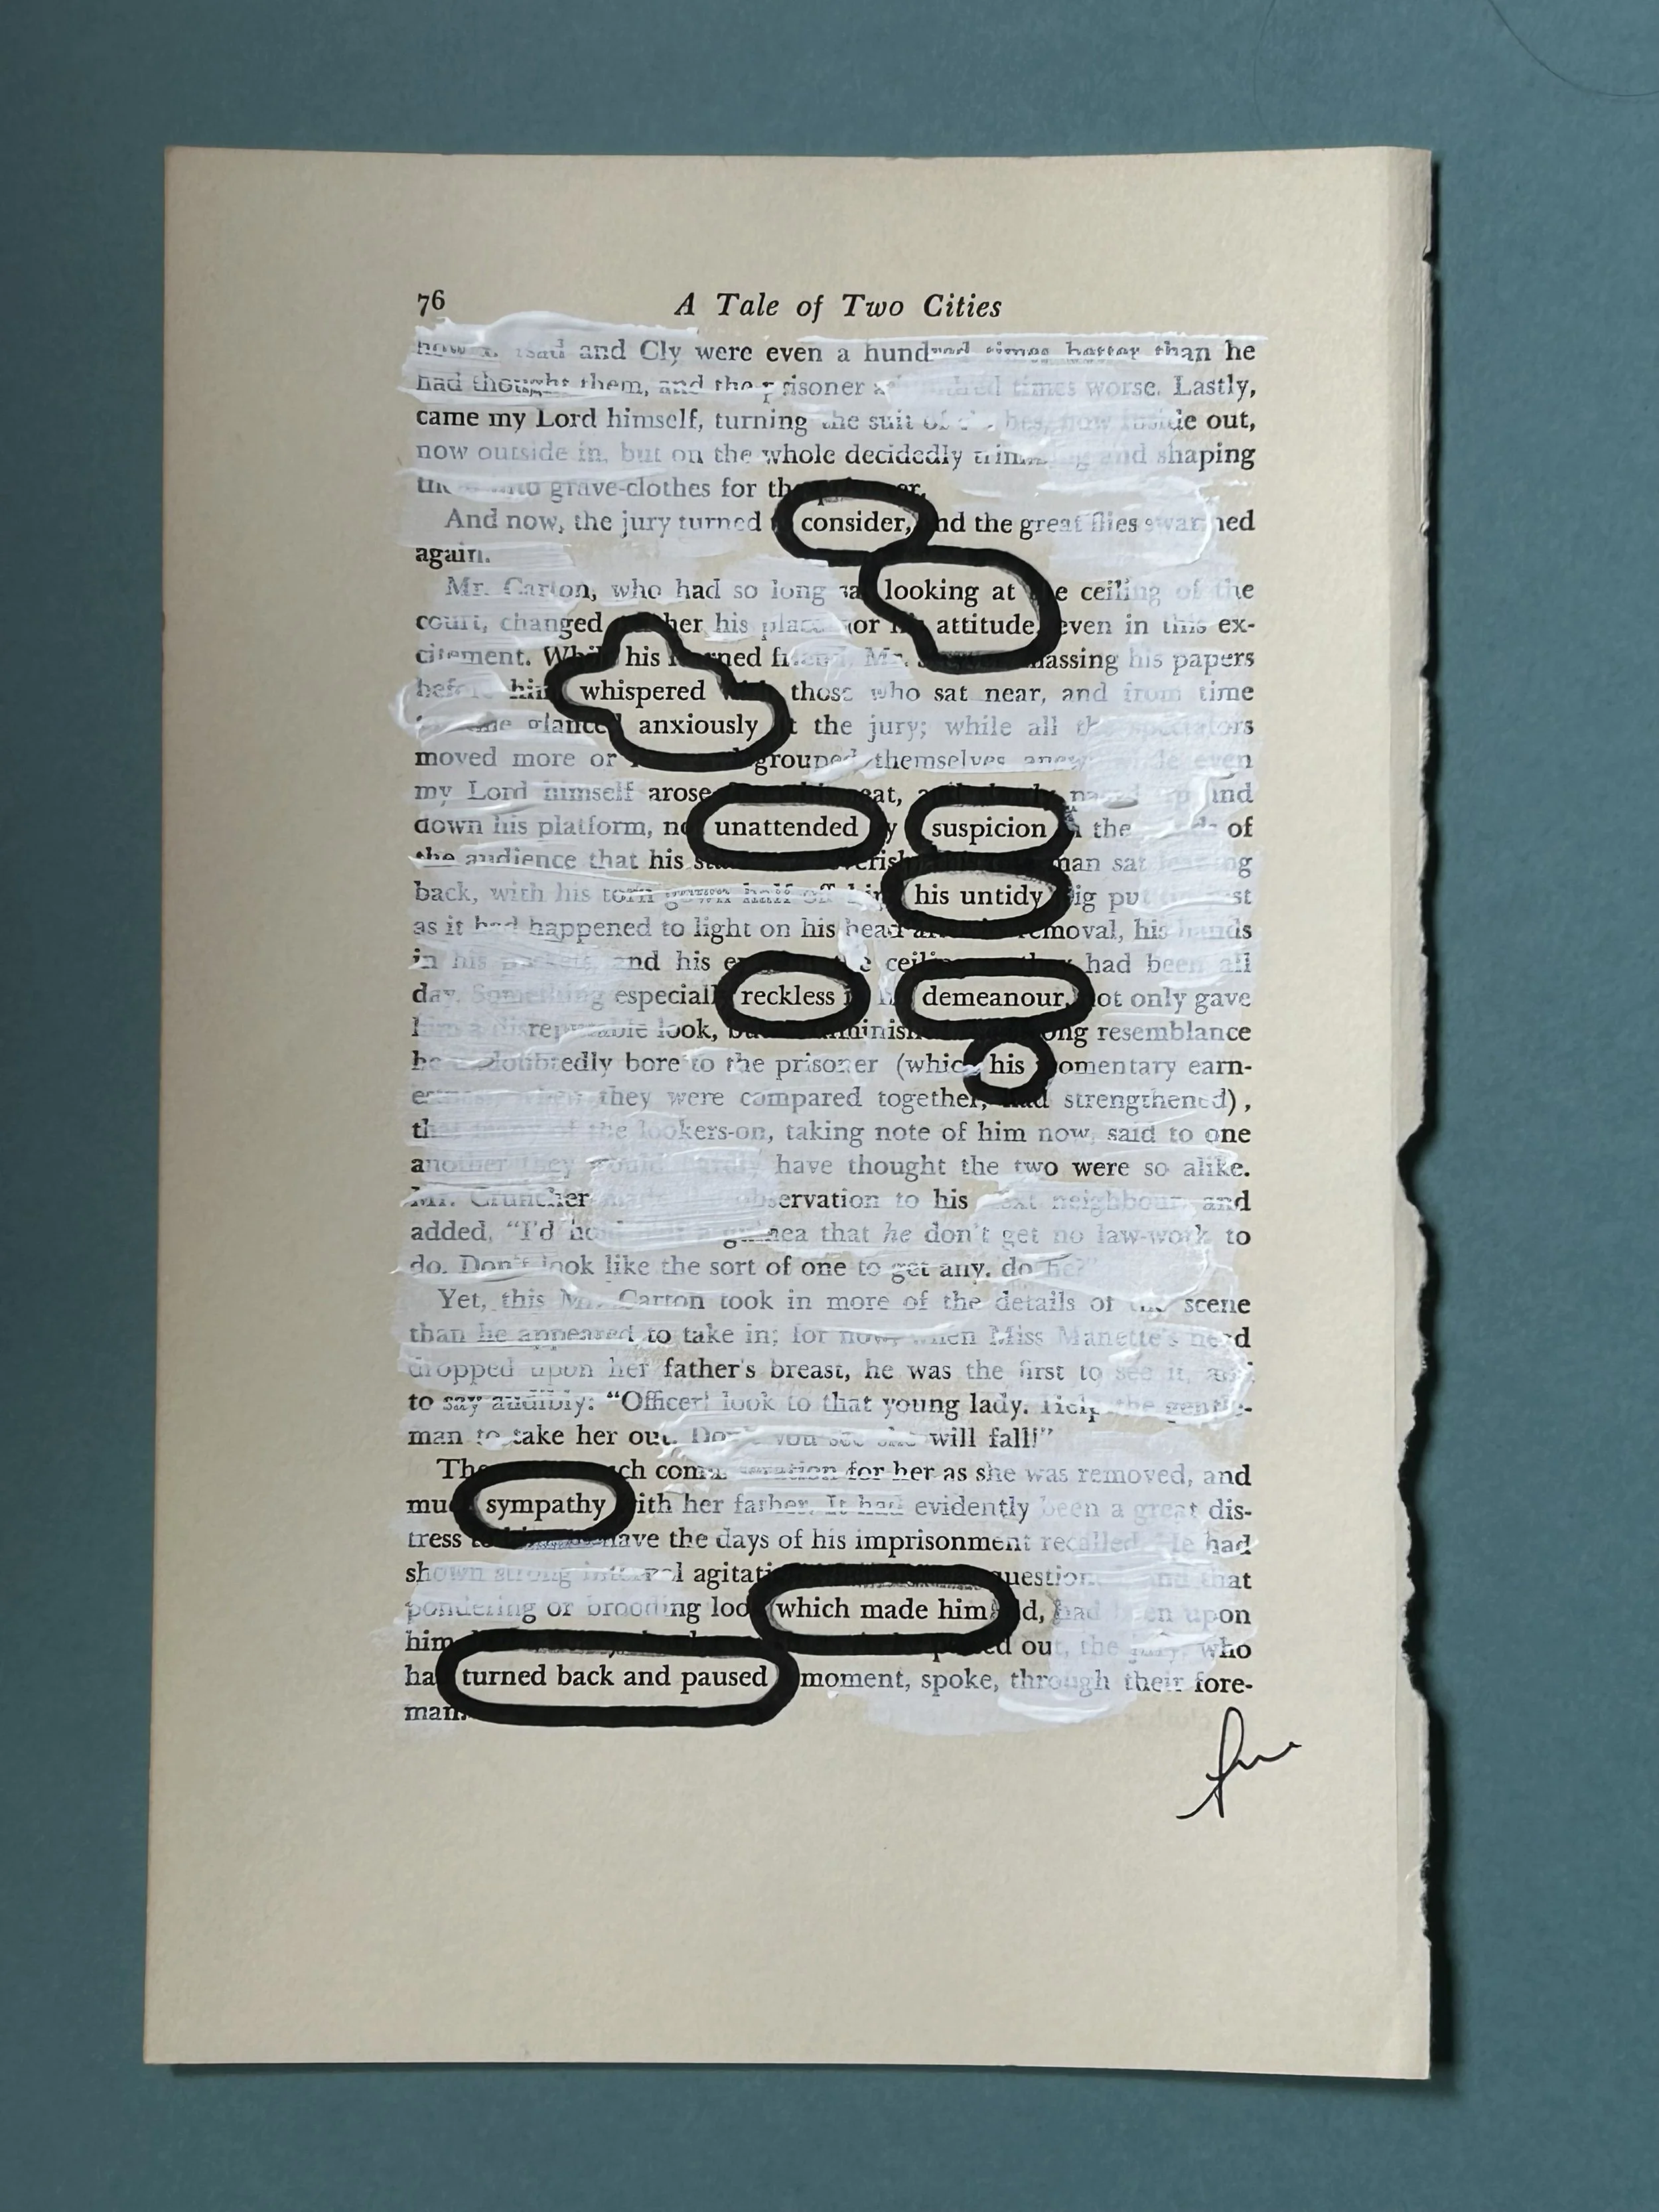 76 A Tale of Two Cities
and Cly were even a hundred times better than he
had thought them, and the prisoner a hundred times worse. Lastly,
came my Lord himself, turning the suit of now inside out,
now outside in, but on the whole decidedly and shaping
grave-clothes for
And now, the jury turned consider, and the great flies swarmed
again.
Mr. Carton, who had so long looking at ceiling of the
court, changed his place nor attitude, even in this ex-
citement. While his friend, Mr. massing his papers
before him whispered those who sat near, and from time
glanced anxiously the jury; while all the spectators
moved more or grouped themselves anew; even
my Lord himself arose
down his platform, unattended suspicion the of
the audience that his man sat leaning
back, with his torn gown half off his untidy put
as it had happened to light on his head removal, his hands
in his pockets, and his had been all
day. Something especially reckless demeanour, not only gave
him a disreputable look, resemblance
he undoubtedly bore to the prisoner (which his momentary earn-
estness, when they were compared together, had strengthened),
that many of the lookers-on, taking note of him now, said to one
another they would hardly have thought the two were so alike.
Mr. Cruncher made the observation to his next neighbour, and
added, "I'd hold a guinea that he don't get no law-work to
do. Don't look like the sort of one to get any, do he?"
Yet, this Mr. Carton took in more of the details of the scene
than he appeared to take in; for now, when Miss Manette's head
dropped upon her father's breast, he was the first to see it, and
to say audibly: "Officer! look to that young lady. Help the gentle-
man to take her out. Don't you see she will fall!"
commiseration for her as she was removed, and
much sympathy with her father. It had evidently been a great dis-
tress have the days of his imprisonment recalled. He had
shown strong internal agitation and that
pondering or brooding look which made him had been upon
him out, the jury, who
had turned back and paused moment, spoke, through their fore-
man.